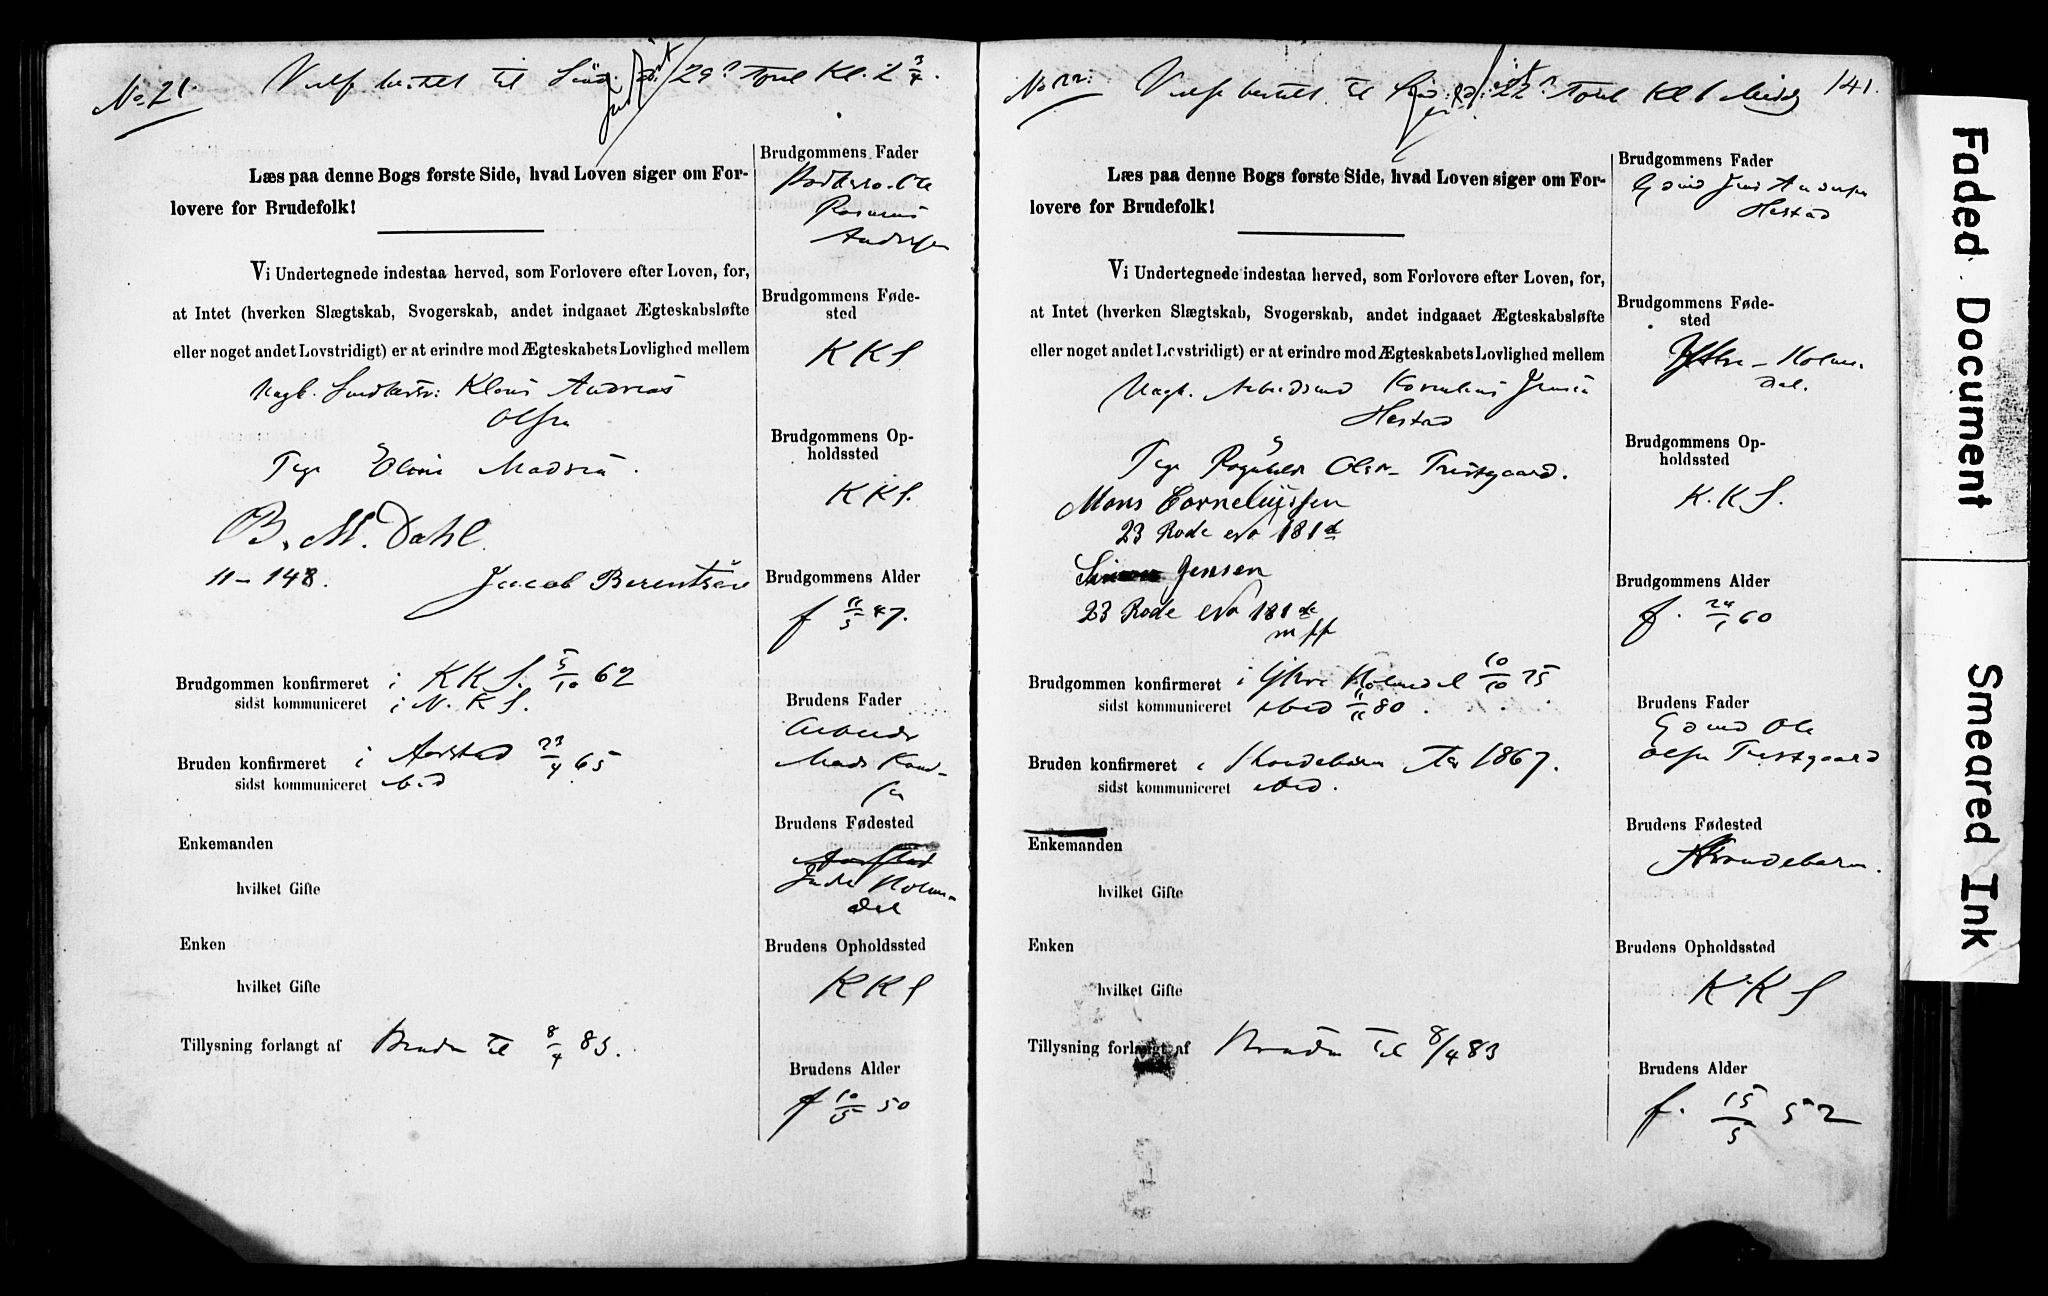 No 21. Vielse bestilt til Sønd. d. 29 April Kl. 2 3/4.
Læs paa denne Bogs første Side, hvad Loven siger om For-
lovere for Brudefolk!
Vi Undertegnede indestaa herved, som Forlovere efter Loven, for,
at Intet (hverken Slægtskab, Svogerskab, andet indgaaet Ægteskabsløfte
eller noget andet Lovstridigt) er at erindre mod Ægteskabets Lovlighed mellem
Ungk. Klaus Andreas
Olsen
Pige Madsen.
B. M. Dahl.
11 - 148. Jacob Berentsen
Brudgommen konfirmeret i KKS. 5/10 62
sidst kommuniceret i N.KS.
Bruden konfirmeret i Aarstad 23/4 65
sidst kommuniceret ibid
Enkemanden
hvilket Gifte
Enken
hvilket Gifte
Tillysning forlangt af Bruden til 8/4 83.
Brudgommens Fader
Ole
Rasmus
Andersen
BrudgommensFøde-
sted
KKS.
Brudgommens Op-
holdssted
KKS.
Brudgommens Alder
f 11/5 47.
Brudens Fader
Arbeider
Mads Knud-
sen
Brudens Fødested
Aarstad
Indre Holm-
dal
Brudens Opholdssted
KKS
Brudens Alder
f 10/5 50
No 22. Vielse bestilt til d. 22 April Kl 6 Midd
141.
Læs paa denne Bogs første Side, hvad Loven siger om For-
lovere for Brudefolk!
Vi Undertegnede indestaa herved, som Forlovere efter Loven, for,
at Intet (hverken Slægtskab, Svogerskab, andet indgaaet Ægteskabsløfte
eller noget andet Lovstridigt) er at erindre mod Ægteskabets Lovlighed mellem
Ungk. Arbeidsmd Kornelius Jensen
Hestad
Pige Ragnhild Olsdr Tristgaard.
Mons Corneliussen
23 Rode No 181 d
Simon Jensen
23 Rode No 181 de
m ff
Brudgommen konfirmeret i Ytre Holmedal 10/10 75
sidst kommuniceret ibid 11/11 80.
Bruden konfirmeret i Strandebarm Aar 1867.
sidst kommuniceret ibid.
Enkemanden
hvilket Gifte
Enken
hvilket Gifte
Tillysning forlangt af Bruden til 8/4 83
Brudgommens Fader
Gdmd Jens Andersen
Hestad
Brudgommens Føde-
sted
Ytre - Holme-
dal.
Brudgommens Op-
holdssted
K.K S.
Brudgommens Alder
f. 24/1 60
Brudens Fader
Gdmd Ole
Olsen Tristgaard
Brudens Fødested
Strandebarm.
Brudens Opholdssted
K.K S
Brudens Alder
f. 15/5 52
Faded Document
Smeared Ink